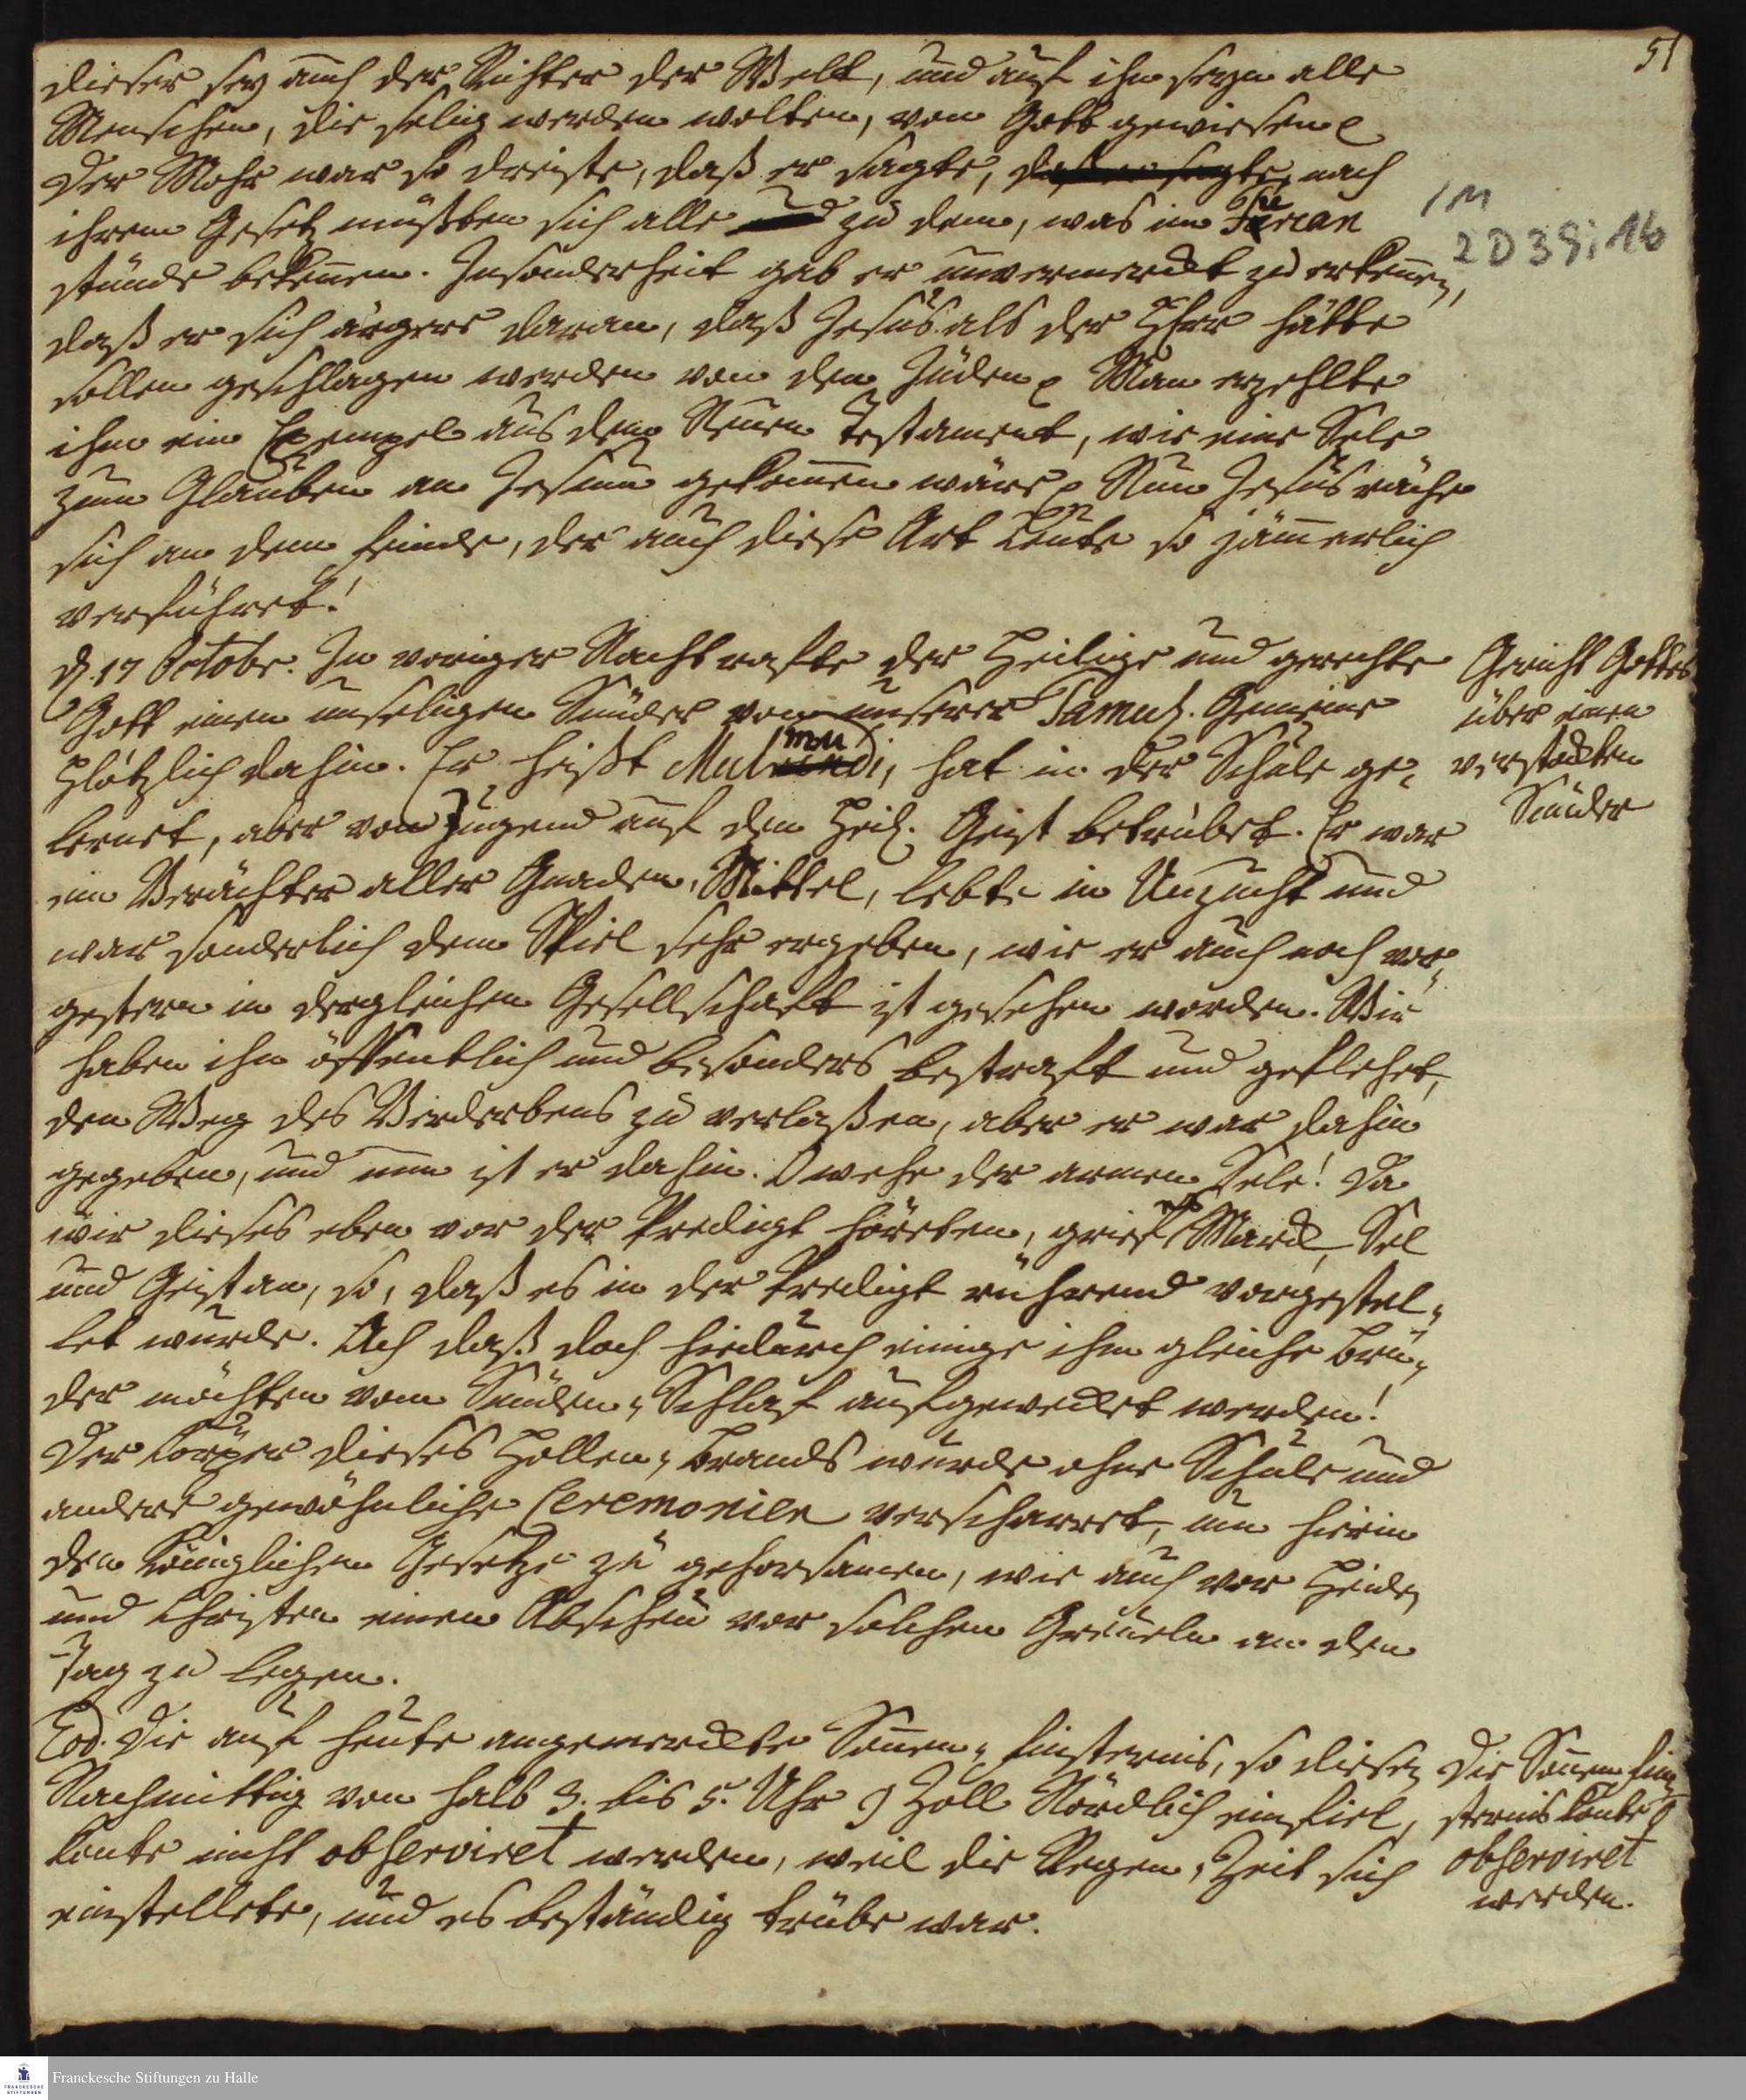 51
dieser sey auch der Richter der Welt, und auf ihn seyn alle
Menschen, die selig werden wolten, von Gott gewiesen
Der Mohr war so dreiste, daß er sagte, daß er sagte, nach
ihrem Gesetz müßten sich alle zu dem, was im Furcan
stünde bekennen. Insonderheit gab er unvermerckt zu erkennen,
daß er sich ärgere daran, daß Jesus als der HErr hätte
sollen geschlagen werden von den Juden Man erzehlte
ihm ein Exempel aus dem Neuen Testament, wie eine Sele
zum Glauben an Jesum gekommen wäre Nun Jesus räche
sich an dem Feinde, der auch diese Art Leute so jämmerlich
verführet!
1 M
2 D 39; 16
d. 17 Octobr. In voriger Nacht rafte der Heilige und gerechte
Gott einen unseligen Sünder von unserer Tamul. Gemeine
plötzlich dahin. Er heißt Mutmudi, hat in der Schule ge-
lernet, aber von Jugend auf den Heil. Geist betrübet. Er war
ein Verächter aller Gnaden-Mittel, lebte in Unzucht und
war sonderlich dem Spiel sehr ergeben, wie er auch noch vor-
gestern in dergleichen Gesellschaft ist gesehen worden. Wir
haben ihn öffentlich und besonders bestraft und geflehet,
den Weg des Verderbens zu verlaßen, aber er war dahin
gegeben, und nun ist er dahin. O wehe der armen Sele! Da
wir dieses eben vor der Predigt höreten, grief es Marck, Sel
und Geist an, so, daß es in der Predigt rührend vorgestel-
let wurde. Ach daß doch hiedurch einige ihm gleiche Brü-
der möchten vom Sünden-Schlaf aufgewecket werden!
Der Cörper dieses Höllen-Brands wurde ohne Schule und
andere gewöhnliche Ceremonien verscharret, um hierin
den Königlichen Gesetze zu gehorsamen, wie auch vor Heiden
und Christen einen Abscheu vor solchen Greueln an den
Tag zu legen.
Gericht Gottes
über einen
verstockten
Sünder
Eod. Die auf heute angemerckte Sonnen-Finsternis, so diesen
Nachmittag von halb 3. bis 5. Uhr 9 Zoll Nördlich einfiel,
konte nicht observiret werden, weil die Regen-Zeit sich
einstellete, und es beständig trübe war.
Die Sonnen Fin-
sternis konte
observiret
werden.
Franckesche Stiftungen zu Halle
FRANCKESCHE
STIFTUNGEN